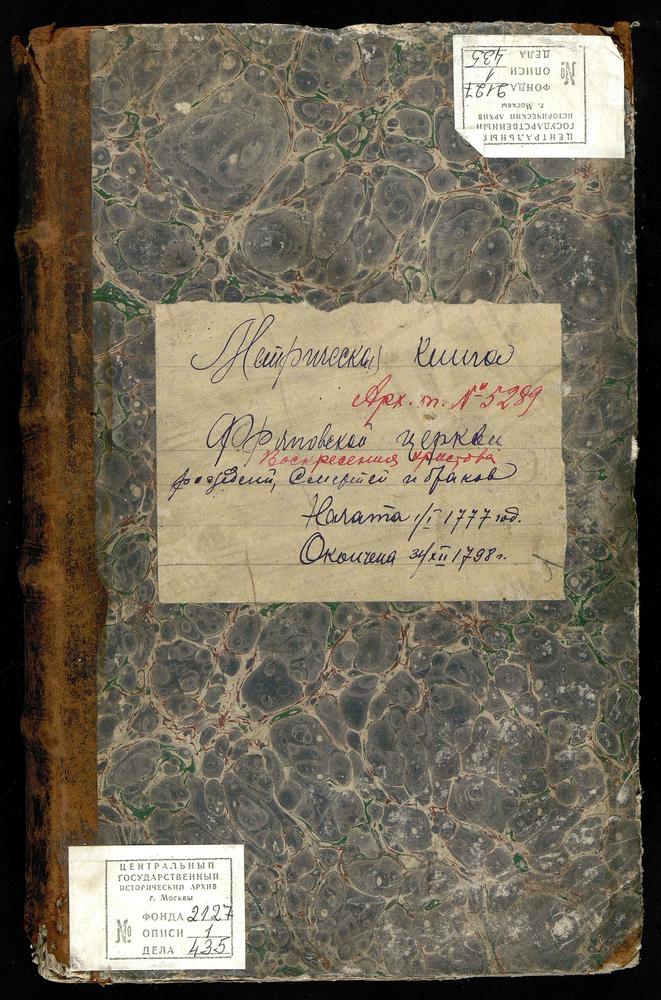 ЦЕНТРАЛЬНЫЙ
ГОСУДАРСТВЕННЫЙ
ИСТОРИЧЕСКИЙ АРХИВ
г. Москвы
№
ФОНДА 2127
ОПИСИ 1
ДЕЛА 435
Метрическая книга
Арх. т. № 5289
Фряновской церкви
Воскресения Христова
рождений, Смертей и браков
Начата 1/I 1777 год.
Окончена 31/XII 1798 г.
ЦЕНТРАЛЬНЫЙ
ГОСУДАРСТВЕННЫЙ
ИСТОРИЧЕСКИЙ АРХИВ
г. Москвы
№
ФОНДА 2127
ОПИСИ 1
ДЕЛА 435